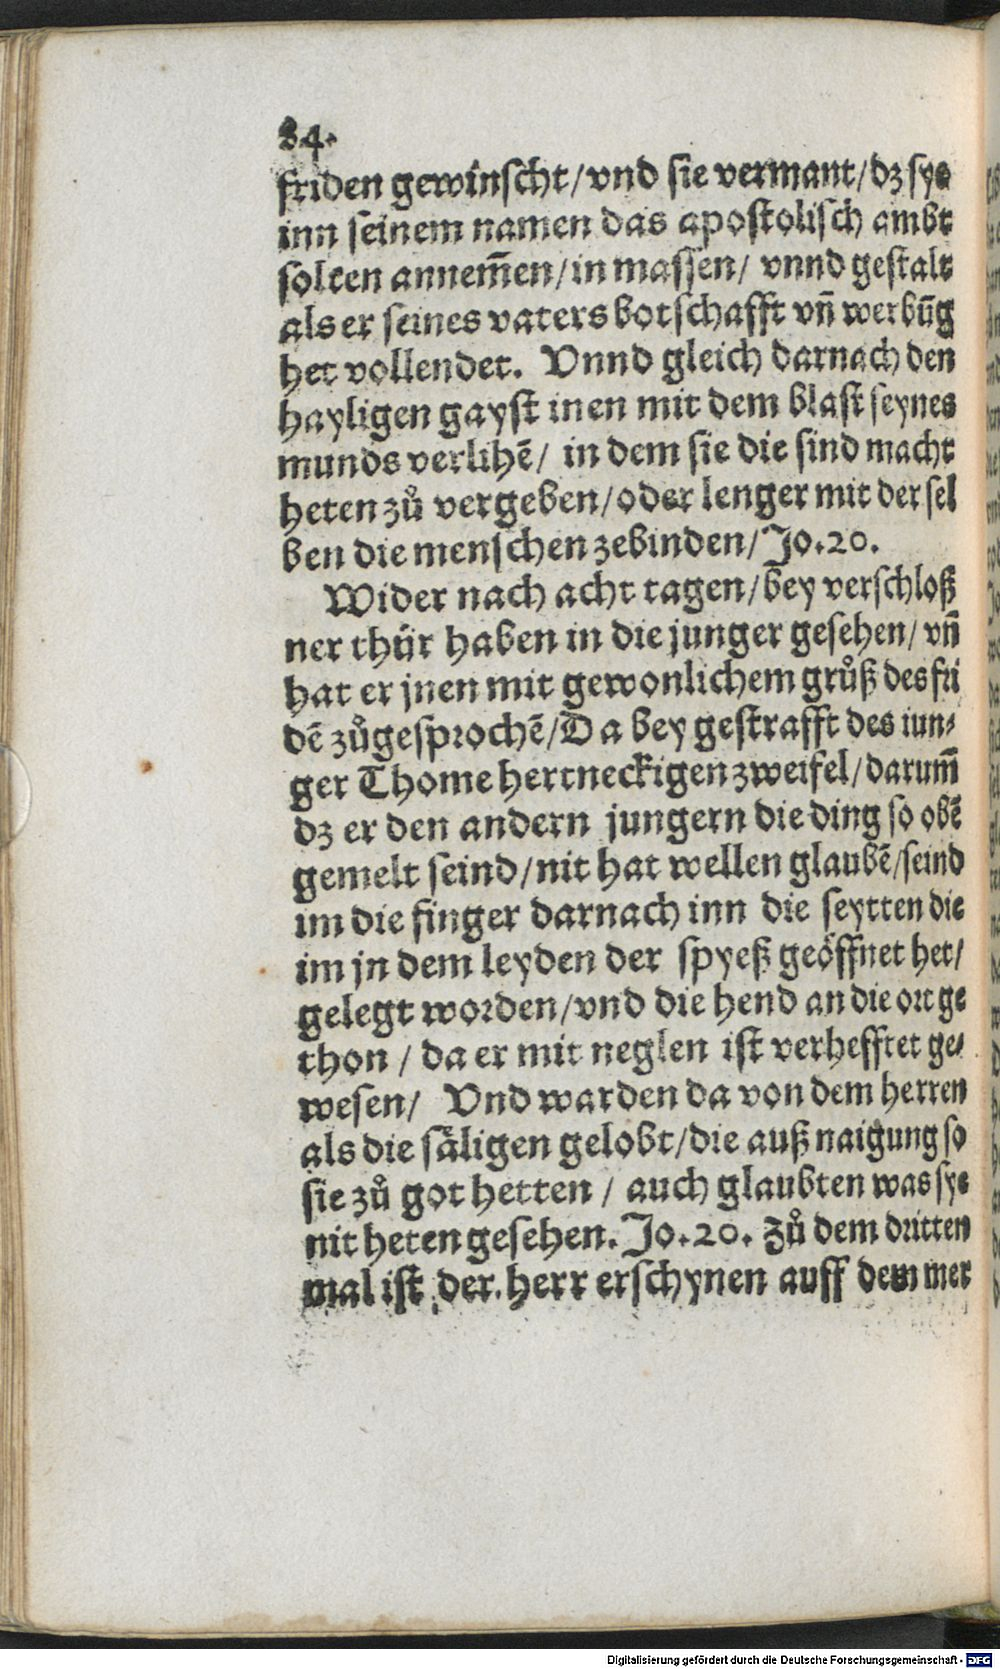 84.
friden gewinscht/vnd sie vermant/dz sye
inn seinem namen das apostolisch ambt
solten annem̃en/in massen/ vnnd gestalt
als er seines vaters botschafft vñ werbũg
het vollendet. Vnnd gleich darnach den
hayligen gayst inen mit dem blast seynes
munds verlihẽ/ in dem sie die sind macht
heten zů vergeben/oder lenger mit der sel
ben die menschen zebinden/Jo.20.
Wider nach acht tagen/bey verschloß
ner thür haben in die junger gesehen/vñ
hat er jnen mit gewonlichem grůß des fri
dẽ zůgesprochẽ/Da bey gestrafft des iun-
ger Thome hertneckigen zweifel/darum̃
dz er den andern jungern die ding so obẽ
gemelt seind/nit hat wellen glaubẽ/seind
im die finger darnach inn die seytten die
im jn dem leyden der spyeß geöffnet het/
gelegt worden/vnd die hend an die ort ge
thon / da er mit neglen ist verhefftet ge-
wesen/ Vnd warden da von dem herren
als die säligen gelobt/die auß naigung so
sie zů got hetten / auch glaubten was sye
nit heten gesehen. Jo.20. Zů dem dritten
mal ist der herr erschynen auff dem mer
Digitalisierung gefördert durch die Deutsche Forschungsgemeinschaft - DFG